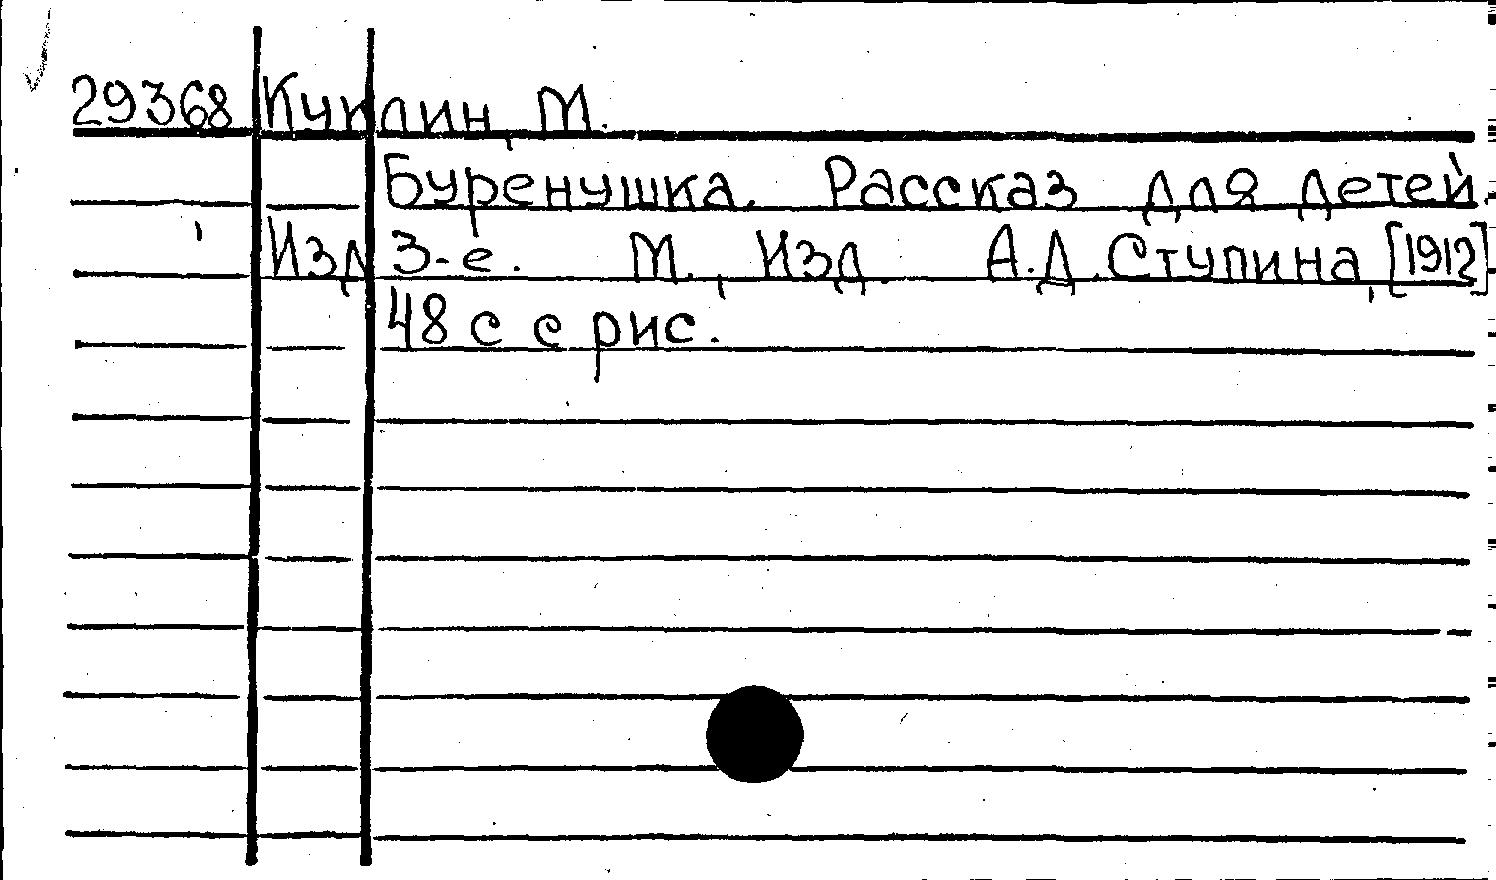 29368 Куклин, М.
Буренушка. Рассказ для детей.
Изд 3-е. М., Изд. А.Д. Ступина, [1912]
48 с с рис.